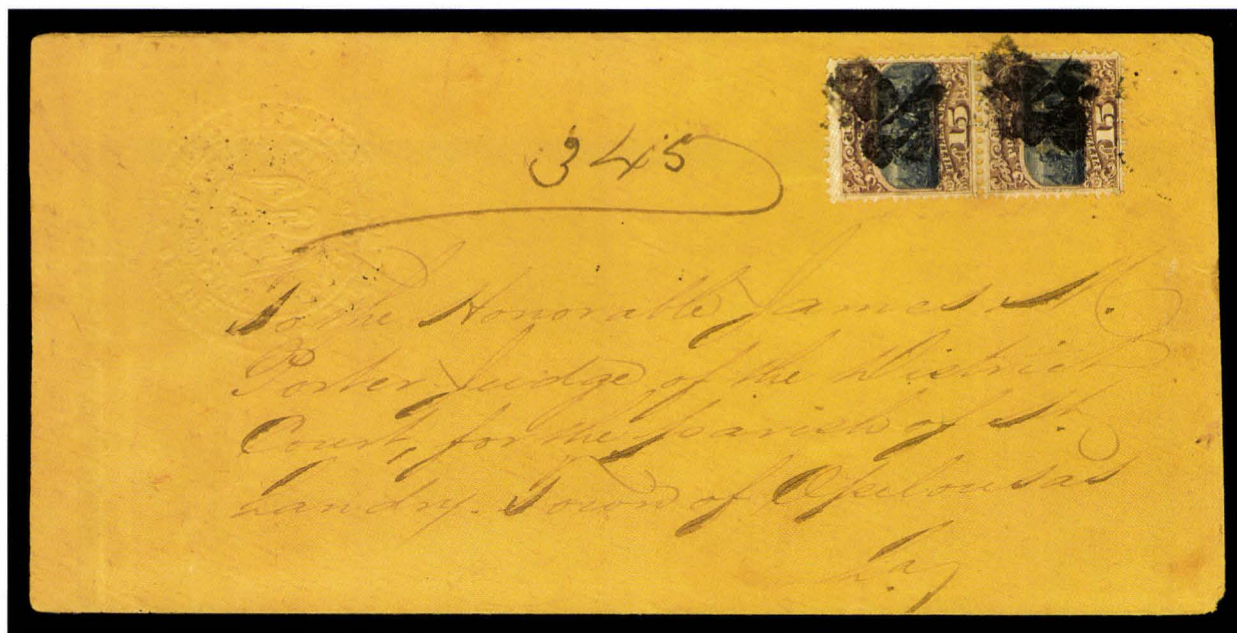 345
15
15
To the Honorable James M.
Porter Judge of the District
Court, for the parish of St.
Landry. Town of Opelousas
La